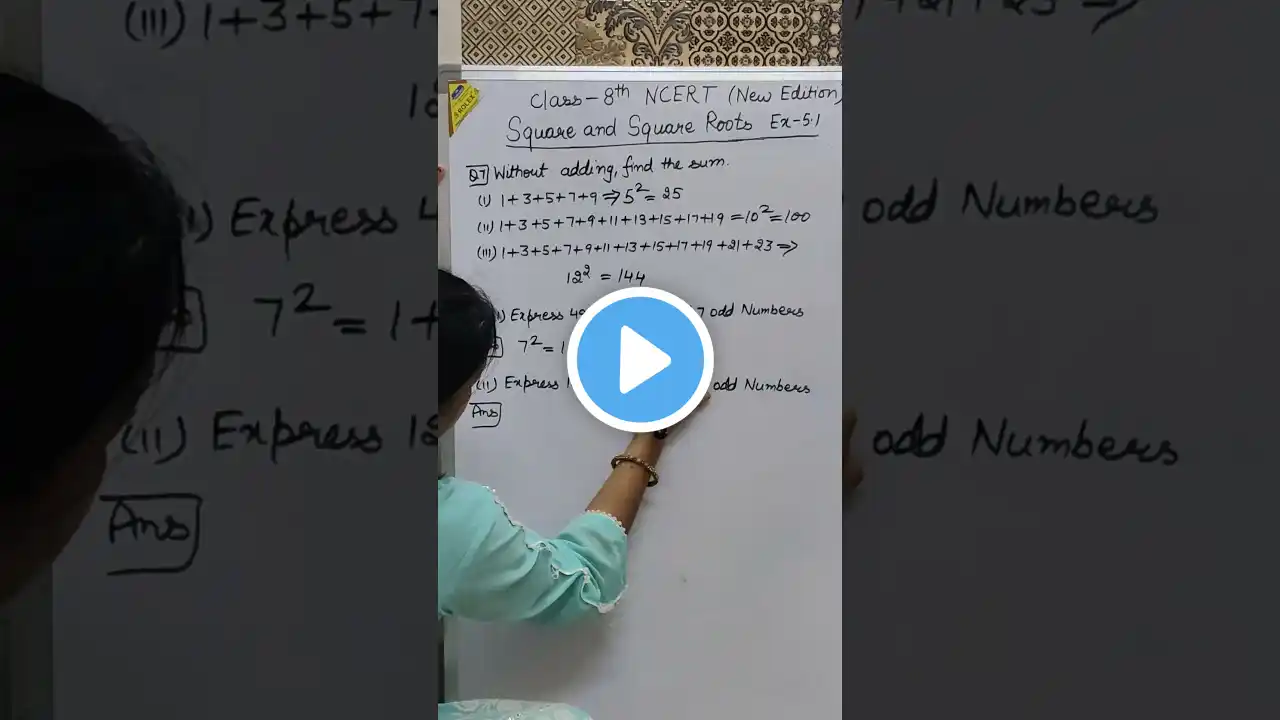 Class-8th NCERT (New Edition)
Square and Square Roots Ex-5.1
Q7 Without adding, find the sum.
(i) 1+3+5+7+9 ⇒ 5² = 25
(ii) 1+3+5+7+9+11+13+15+17+19 = 10² = 100
(iii) 1+3+5+7+9+11+13+15+17+19+21+23 ⇒
12² = 144
) Express 49 7 odd Numbers
7² = 1
(ii) Express 1 odd Numbers
Ans